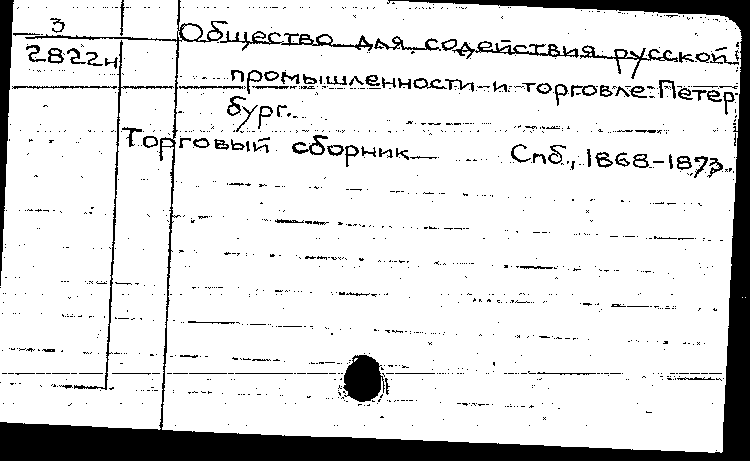 3
2822н
Общество для содействия русской
промышленности и торговле. Петер
бург.
Торговый сборник Спб., 1868-1873.